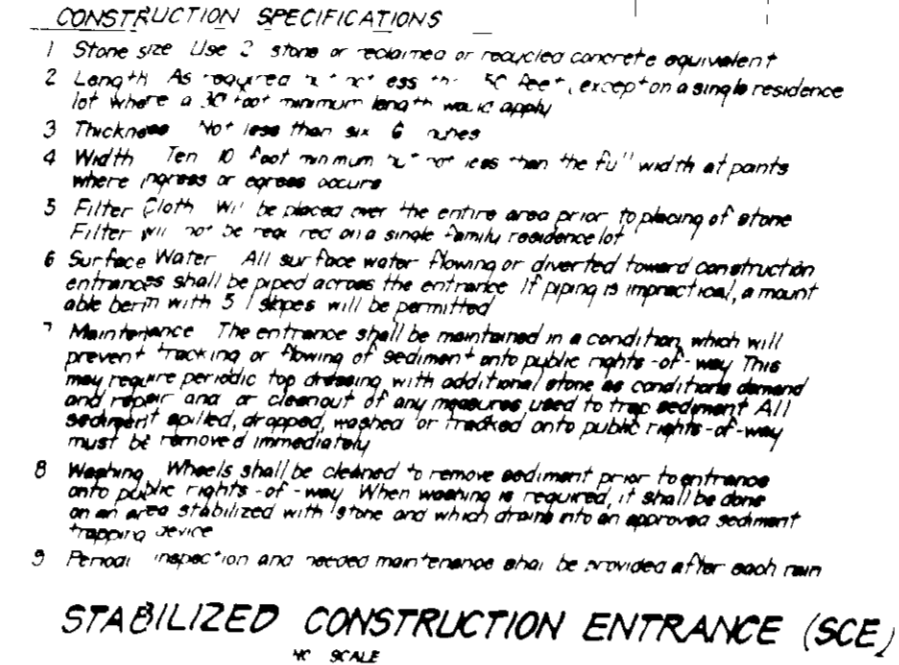 CONSTRUCTION SPECIFICATIONS
1 Stone size Use 2 stone or reclaimed or recycled concrete equivalent
2 Length As required not less 50 feet, except on a single residence
lot where a 30 foot minimum length would apply
3 Thickness Not less than six 6 inches
4 Width Ten 10 foot minimum but not less than the full width at points
where ingress or egress occurs
5 Filter Cloth Will be placed over the entire area prior to placing of stone
Filter will not be required on a single family residence lot
6 Surface Water All surface water flowing or diverted toward construction
entrances shall be piped across the entrance If piping is impractical, a mount
able berm with 5 1 slopes will be permitted
7 Maintenance The entrance shall be maintained in a condition, which will
prevent tracking or flowing of sediment onto public rights-of-way This
may require periodic top dressing with additional stone as conditions demand
and repair and or cleanout of any measures used to trap sediment All
sediment spilled, dropped, washed or tracked onto public rights-of-way
must be removed immediately
8 Washing Wheels shall be cleaned to remove sediment prior to entrance
onto public rights-of-way When washing is required, it shall be done
on an area stabilized with stone and which drains into an approved sediment
trapping device
9 Periodic inspection and needed maintenance shall be provided after each rain
STABILIZED CONSTRUCTION ENTRANCE (SCE)
NO SCALE